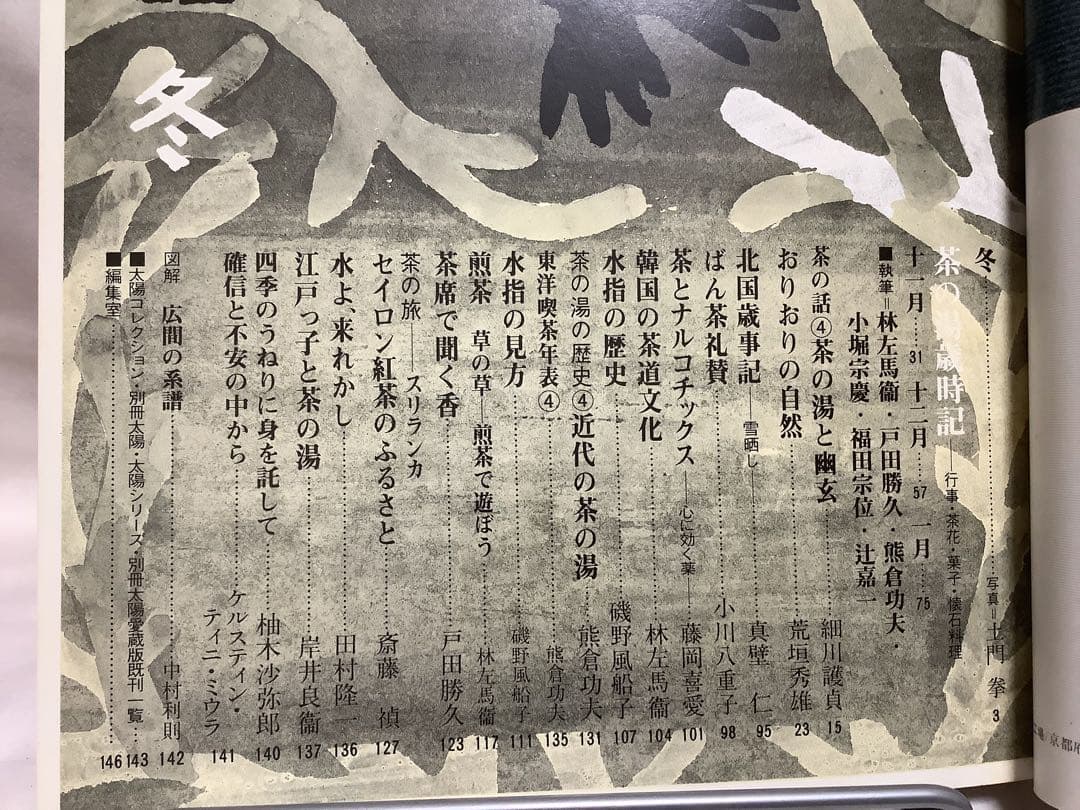 冬
冬……写真=土門 拳 3
茶の湯歳時記——行事・茶花・菓子・懐石料理
十一月……31 十二月……57 一月……75
■執筆=林左馬衞・戸田勝久・熊倉功夫・
小堀宗慶・福田宗位・辻嘉一
茶の話④茶の湯と幽玄……細川護貞 15
おりおりの自然……荒垣秀雄 23
北国歳事記——雪晒し……真壁 仁 95
ばん茶礼賛……小川八重子 98
茶とナルコチックス——心に効く薬……藤岡喜愛 101
韓国の茶道文化……林左馬衞 104
水指の歴史……磯野風船子 107
茶の湯の歴史④近代の茶の湯……熊倉功夫 131
東洋喫茶年表④……熊倉功夫 135
水指の見方……磯野風船子 111
煎茶 草の草——煎茶で遊ぼう……林左馬衞 117
茶席で聞く香……戸田勝久 123
茶の旅——スリランカ
セイロン紅茶のふるさと……斎藤 禎 127
水よ、来れかし……田村隆一 136
江戸っ子と茶の湯……岸井良衞 137
四季のうねりに身を託して……柚木沙弥郎 140
確信と不安の中から……ケルスティン・
ティニ・ミウラ 141
図解 広間の系譜……中村利則 142
■太陽コレクション・別冊太陽・太陽シリーズ・別冊太陽愛蔵版既刊一覧……143
■編集室……146